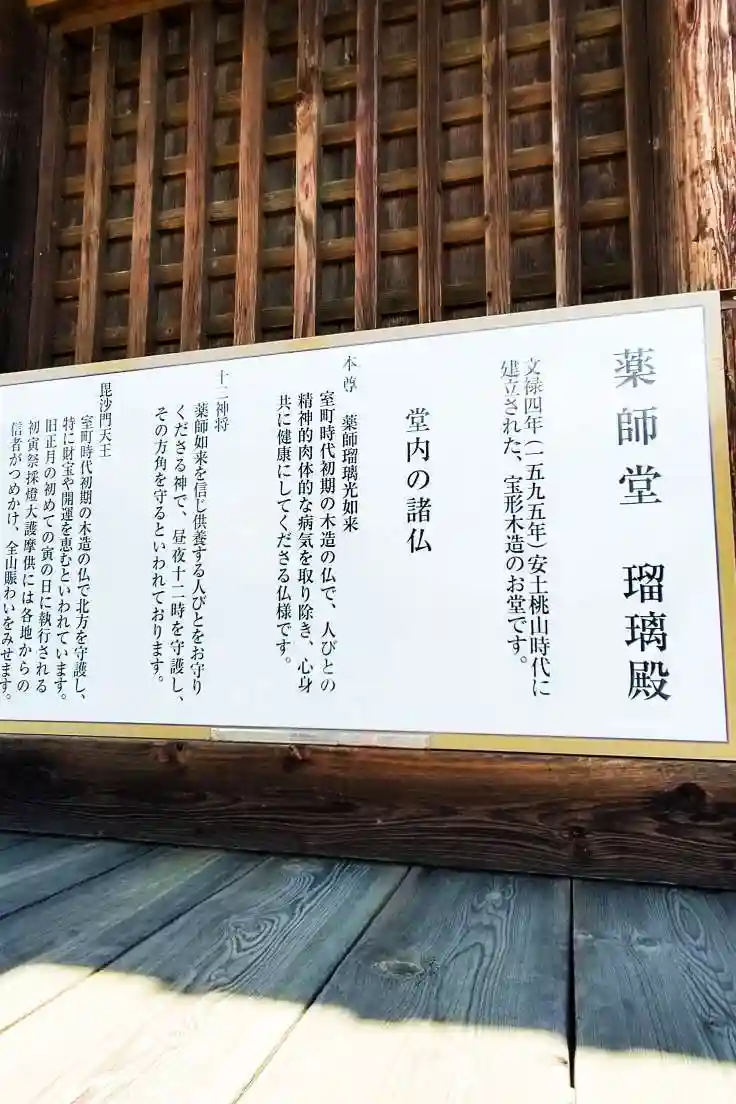 薬師堂　瑠璃殿
文禄四年(一五九五年)安土桃山時代に
建立された、宝形木造のお堂です。
堂内の諸仏
本尊　薬師瑠璃光如来
室町時代初期の木造の仏で、人びとの
精神的肉体的な病気を取り除き、心身
共に健康にしてくださる仏様です。
十二神将
薬師如来を信じ供養する人びとをお守り
くださる神で、昼夜十二時を守護し、
その方角を守るといわれております。
毘沙門天王
室町時代初期の木造の仏で北方を守護し、
特に財宝や開運を恵むといわれています。
旧正月の初めての寅の日に執行される
初寅祭採燈大護摩供には各地からの
信者がつめかけ、全山賑わいをみせます。